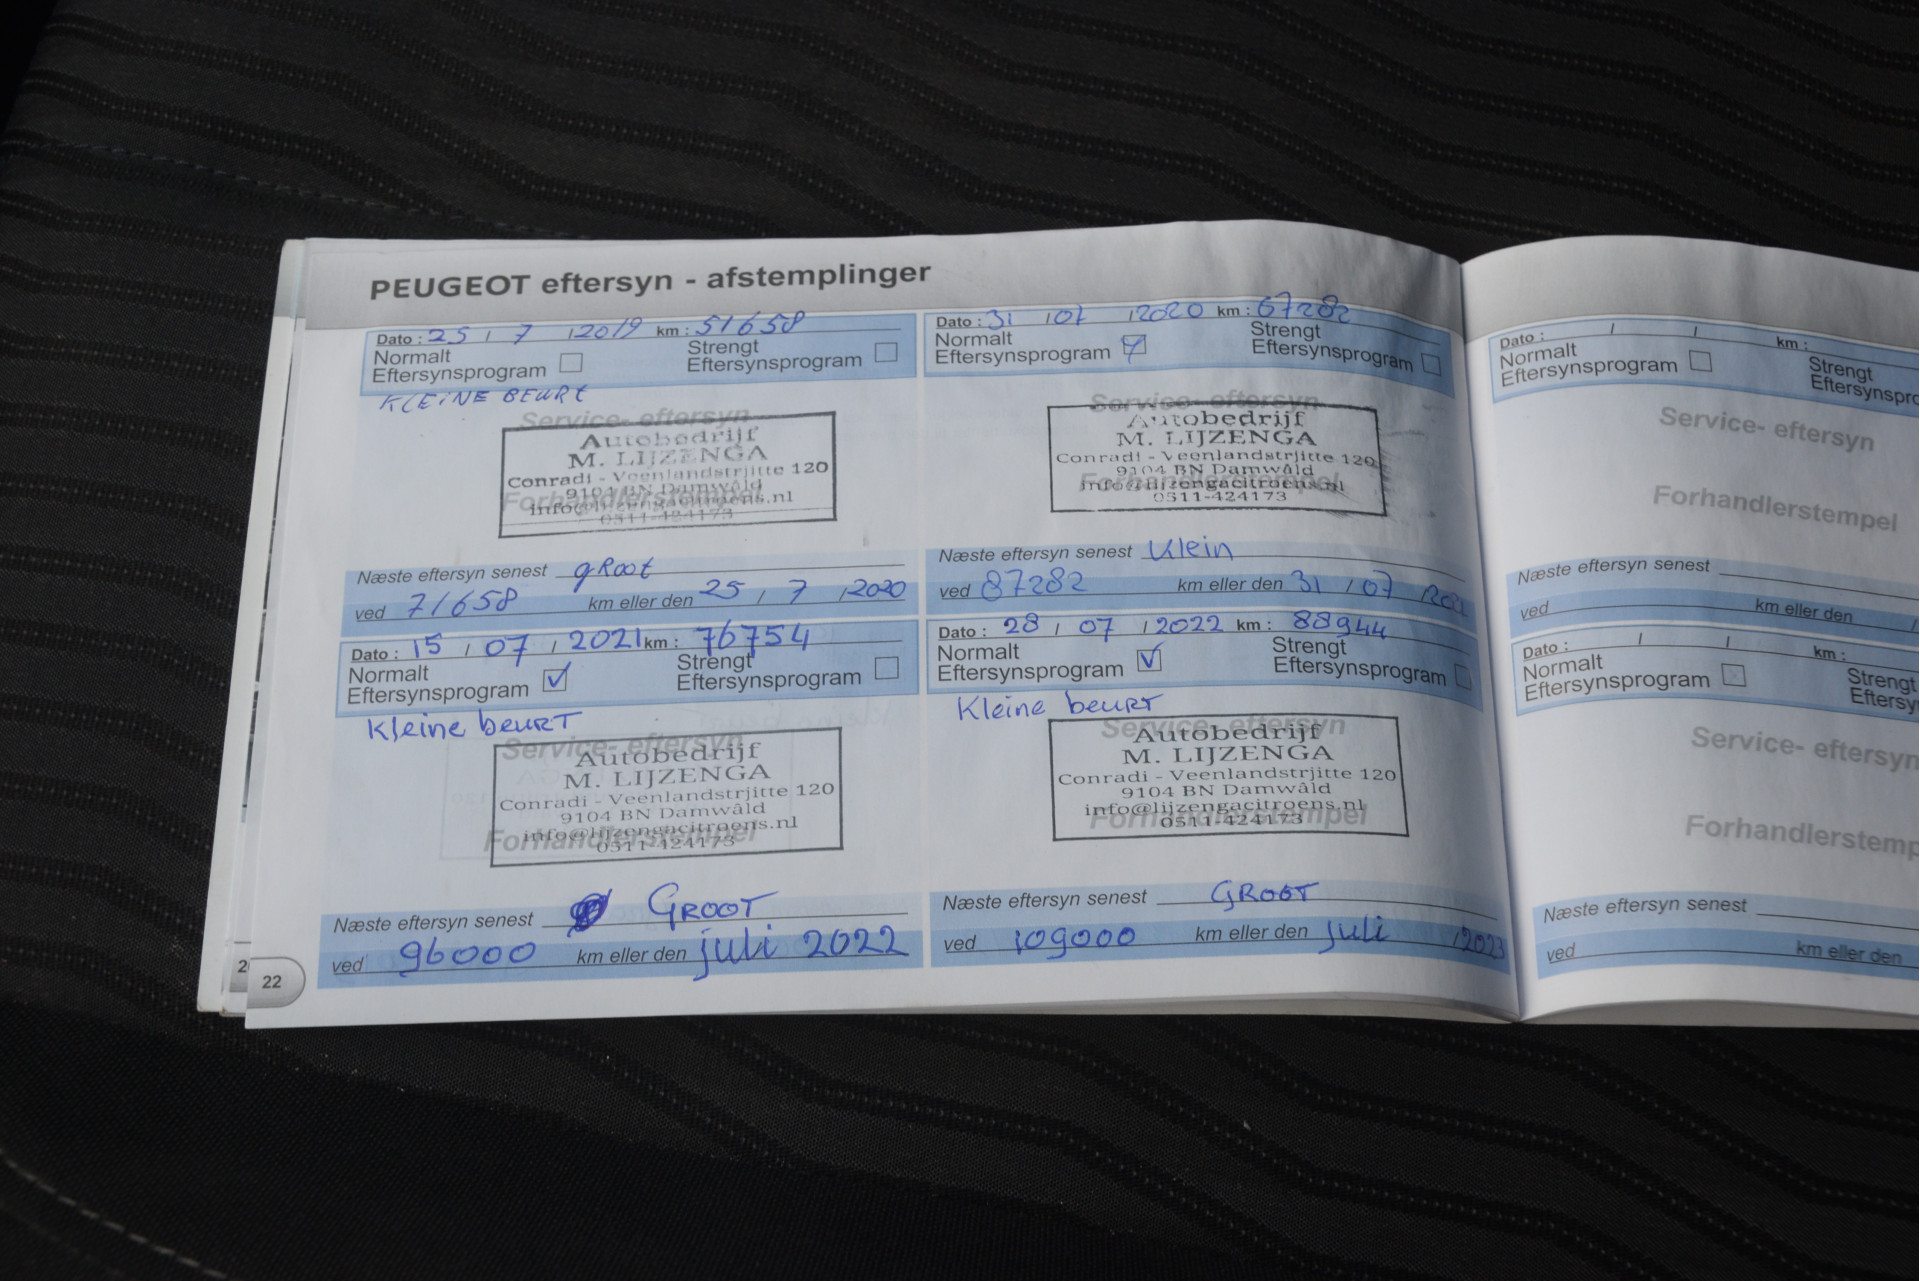 PEUGEOT eftersyn - afstemplinger
Dato : 25 / 7 / 2019 km : 51658
Normalt
Eftersynsprogram
Strengt
Eftersynsprogram
KLEINE BEURT
Service- eftersyn
Autobedrijf
M. LIJZENGA
Conradi - Veenlandstrjitte 120
9104 BN Damwâld
Forhandlerstempel
info@lijzengacitroens.nl
0511-424173
Næste eftersyn senest gRoot
ved 71658 km eller den 25 / 7 / 2020
Dato : 31 / 07 / 2020 km : 67282
Normalt
Eftersynsprogram
Strengt
Eftersynsprogram
Service- eftersyn
Autobedrijf
M. LIJZENGA
Conradi - Veenlandstrjitte 120
9104 BN Damwâld
Forhandlerstempel
info@lijzengacitroens.nl
0511-424173
Næste eftersyn senest Klein
ved 87282 km eller den 31 / 07 /
Dato : 15 / 07 / 2021 km : 76754
Normalt
Eftersynsprogram
Strengt
Eftersynsprogram
Kleine beurt
Service- eftersyn
Autobedrijf
M. LIJZENGA
Conradi - Veenlandstrjitte 120
9104 BN Damwâld
info@lijzengacitroens.nl
Forhandlerstempel
0511-424173
Næste eftersyn senest GROOT
ved 96000 km eller den juli 2022
Dato : 28 / 07 / 2022 km : 88944
Normalt
Eftersynsprogram
Strengt
Eftersynsprogram
Kleine beurt
Service- eftersyn
Autobedrijf
M. LIJZENGA
Conradi - Veenlandstrjitte 120
9104 BN Damwâld
info@lijzengacitroens.nl
Forhandlerstempel
0511-424173
Næste eftersyn senest GROOT
ved 109000 km eller den juli / 2023
22
Dato : / / km :
Normalt
Eftersynsprogram
Strengt
Eftersynspro
Service- eftersyn
Forhandlerstempel
Næste eftersyn senest
ved km eller den /
Dato : / / km :
Normalt
Eftersynsprogram
Strengt
Eftersy
Service- eftersyn
Forhandlerstemp
Næste eftersyn senest
ved km eller den